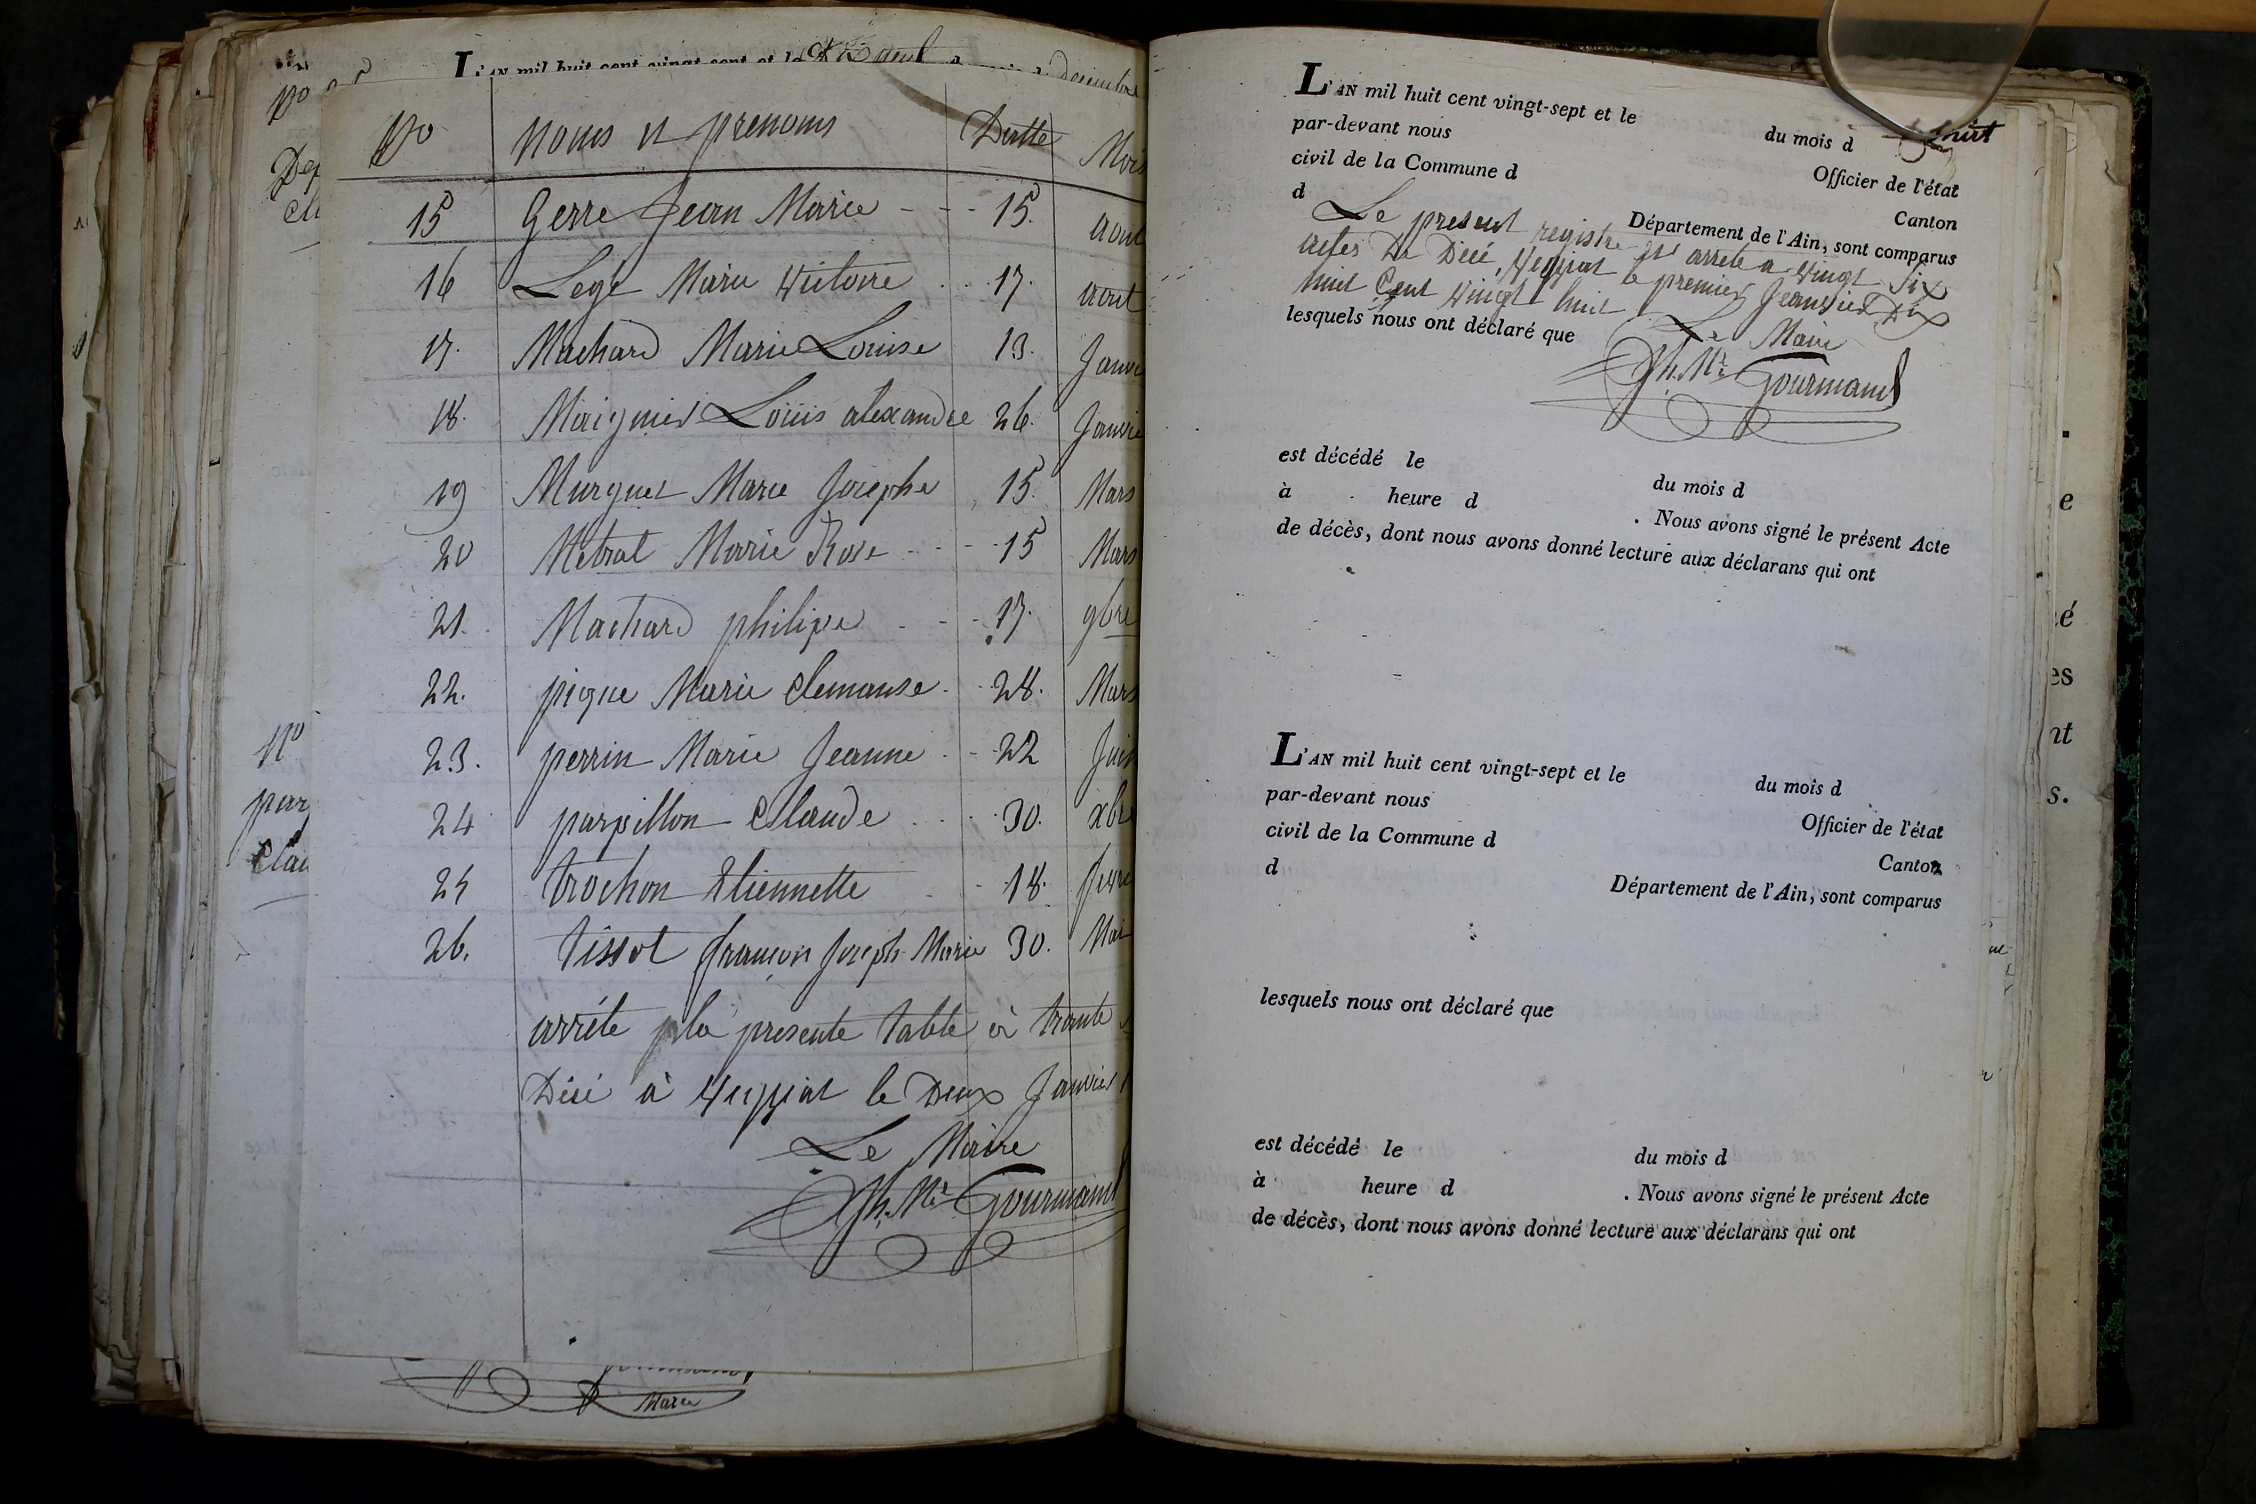 L'AN mil huit cent vingt-sept et le
No
No noms et prenoms Datte Mois
15 Gerre Jean Marie 15. aout
16 Lege Marie Victoire 17. aout
17. Machard Marie Louise 13. Janvi
18. Maignier Louis alexandre 26. Janvie
19 Murguet Marie Josephe 15. Mars
20 Metral Marie Rose 15 Mars
21. Machard philipe 17. 9bre
22. pique Marie clemanse 28. Mars
23. perrin Marie Jeanne 22 Juin
24 parpillon Claude 30. xbre
25 trochon Etiennette 18. fevre
26. tissot françois Joseph Marie 30. Mai
arrêté la presente table à trante
Décé à Verjiat le Deux Janvier
Le Maire
Jh. Mie Gourmand
No
par
Clau
Marie
L'AN mil huit cent vingt-sept et le du mois d
par-devant nous Officier de l'état
civil de la Commune d Canton
d Département de l'Ain, sont comparus
Le present registre est arrete a vingt Six
actes De Décé, Verjiat le premier Janvier Dix
huit Cent vingt huit
Le Maire
lesquels nous ont déclaré que
Jh. Mie Gourmand
est décédé le du mois d
à heure d . Nous avons signé le présent Acte
de décès, dont nous avons donné lecture aux déclarans qui ont
L'AN mil huit cent vingt-sept et le du mois d
par-devant nous Officier de l'état
civil de la Commune d Canton
d Département de l'Ain, sont comparus
lesquels nous ont déclaré que
est décédé le du mois d
à heure d . Nous avons signé le présent Acte
de décès, dont nous avons donné lecture aux déclarans qui ont